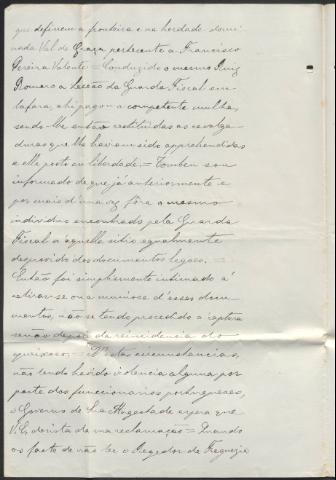 que definem a fronteira e na herdade denomi
nada Val de Graça pertencente a Francisco
Pereira Valente = Conduzido o mesmo Ruiz
Romero a secção da Guarda Fiscal em
Safára, ahi pagou a competente multa,
sendo-lhe então restituidas as cavalga
duras que lhe haviam sido apprehendidas
e elle posto em liberdade. = Tambem sou
informado de que já anteriormente e
por mais d'uma vez fôra o mesmo
individuo encontrado pela Guarda
Fiscal n'aquelle sitio egualmente
desprovido dos documentos legaes. =
Então foi simplesmente intimado á
retirar-se ou a munir-se d'esses docu
mentos, não se tendo procedido á captura
senão depois da reincidencia
das circumstancias,
não tendo havido violencia alguma por
parte dos funccionarios portuguezes,
o Governo de Sua Magestade espera que
V. E. desista da sua reclamação = Quando
ao facto de não ter o Regedor da Freguezia